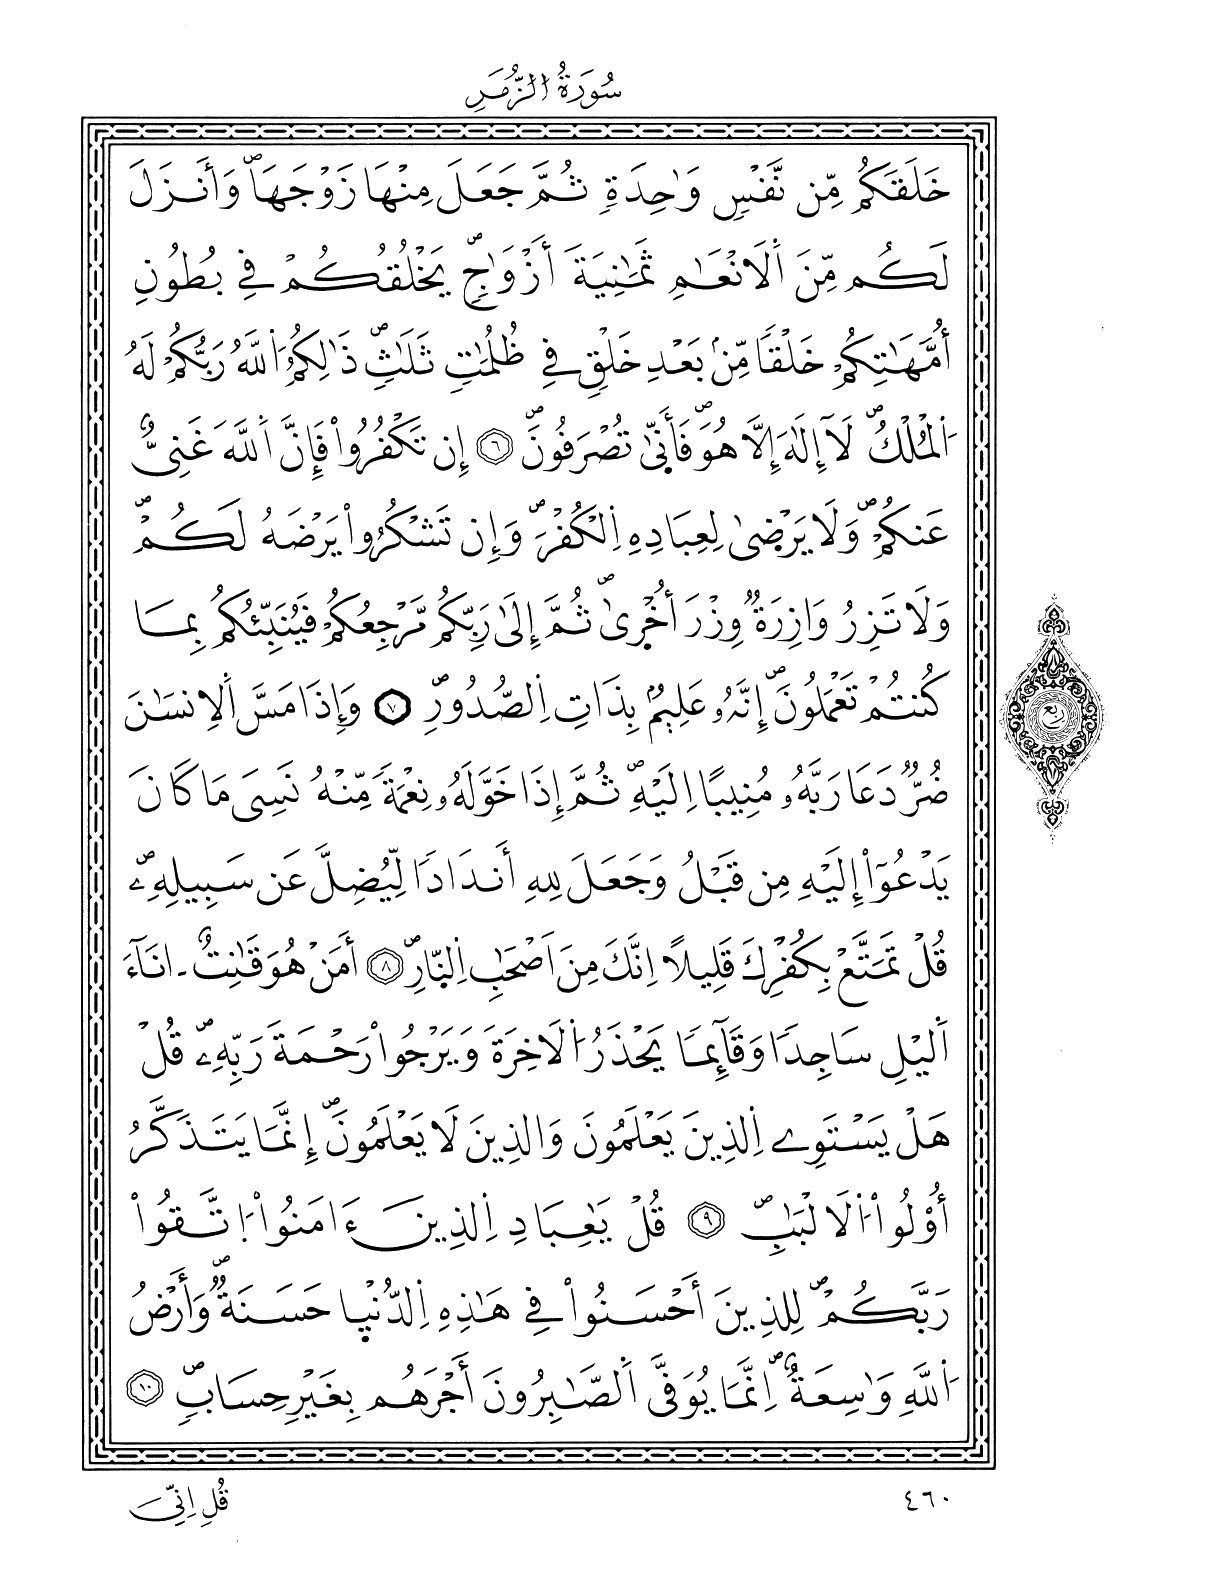 سُورَةُ الزُّمَرِ
خَلَقَكُم مِّن نَّفْسٖ وَٰحِدَةٖ ثُمَّ جَعَلَ مِنْهَا زَوْجَهَاۖ وَأَنزَلَ
لَكُم مِّنَ اَ۬لَانْعَٰمِ ثَمَٰنِيَةَ أَزْوَٰجٖۖ يَخْلُقُكُمْ فِے بُطُونِ
أُمَّهَٰتِكُمْ خَلْقاٗ مِّنۢ بَعْدِ خَلْقٖ فِے ظُلُمَٰتٖ ثَلَٰثٖۖ ذَٰلِكُمُ اُ۬للَّهُ رَبُّكُمْ لَهُ
اُ۬لْمُلْكُۖ لَآ إِلَٰهَ إِلَّا هُوَۖ فَأَنّ۪ىٰ تُصْرَفُونَۖ ٦ إِن تَكْفُرُواْ فَإِنَّ اَ۬للَّهَ غَنِيٌّ
عَنكُمْۖ وَلَا يَرْضَىٰ لِعِبَادِهِ اِ۬لْكُفْرَۖ وَإِن تَشْكُرُواْ يَرْضَهُ لَكُمْۖ
وَلَا تَزِرُ وَازِرَةٞ وِزْرَ أُخْر۪ىٰۖ ثُمَّ إِلَىٰ رَبِّكُم مَّرْجِعُكُمْ فَيُنَبِّئُكُم بِمَا
كُنتُمْ تَعْمَلُونَۖ إِنَّهُۥ عَلِيمُۢ بِذَاتِ اِ۬لصُّدُورِۖ ٧ وَإِذَا مَسَّ اَ۬لِانسَٰنَ
ضُرّٞ دَعَا رَبَّهُۥ مُنِيباً اِلَيْهِۖ ثُمَّ إِذَا خَوَّلَهُۥ نِعْمَةٗ مِّنْهُ نَسِيَ مَا كَانَ
يَدْعُوٓاْ إِلَيْهِ مِن قَبْلُ وَجَعَلَ لِلهِ أَندَاداٗ لِّيُضِلَّ عَن سَبِيلِهِۦۖ
قُلْ تَمَتَّعْ بِكُفْرِكَ قَلِيلاً اِنَّكَ مِنَ اَصْحَٰبِ اِ۬لنّ۪ارِۖ ٨ أَمَنْ هُوَ قَٰنِتٌ ـ انَآءَ
اَ۬ليْلِ سَاجِداٗ وَقَآئِماٗ يَحْذَرُ اُ۬لَاخِرَةَ وَيَرْجُواْ رَحْمَةَ رَبِّهِۦۖ قُلْ
هَلْ يَسْتَوِے اِ۬لذِينَ يَعْلَمُونَ وَالذِينَ لَا يَعْلَمُونَۖ إِنَّمَا يَتَذَكَّرُ
أُوْلُواْ اُ۬لَالْبَٰبِۖ ٩ قُلْ يَٰعِبَادِ اِ۬لذِينَ ءَامَنُواْ اُ۪تَّقُواْ
رَبَّكُمْۖ لِلذِينَ أَحْسَنُواْ فِے هَٰذِهِ اِ۬لدُّنْي۪ا حَسَنَةٞۖ وَأَرْضُ
اُ۬للَّهِ وَٰسِعَةٌۖ اِنَّمَا يُوَفَّى اَ۬لصَّٰبِرُونَ أَجْرَهُم بِغَيْرِ حِسَابٖۖ ١٠
ربع
٤٦٠
قُلِ اِنِّيَ